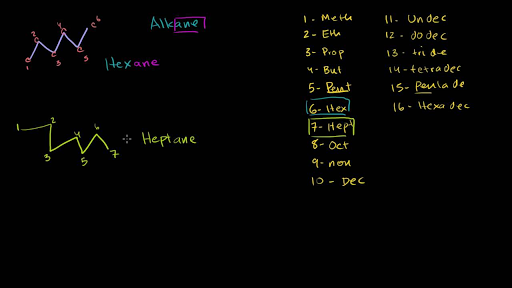 Alkane
C C C C C C
1 2 3 4 5 6
Hexane
1 2 3 4 5 6 7
Heptane
1 - Meth
2 - Eth
3 - Prop
4 - But
5 - Pent
6 - Hex
7 - Hept
8 - Oct
9 - non
10 - Dec
11 - Undec
12 - dodec
13 - tride
14 - tetradec
15 - Pentade
16 - Hexadec